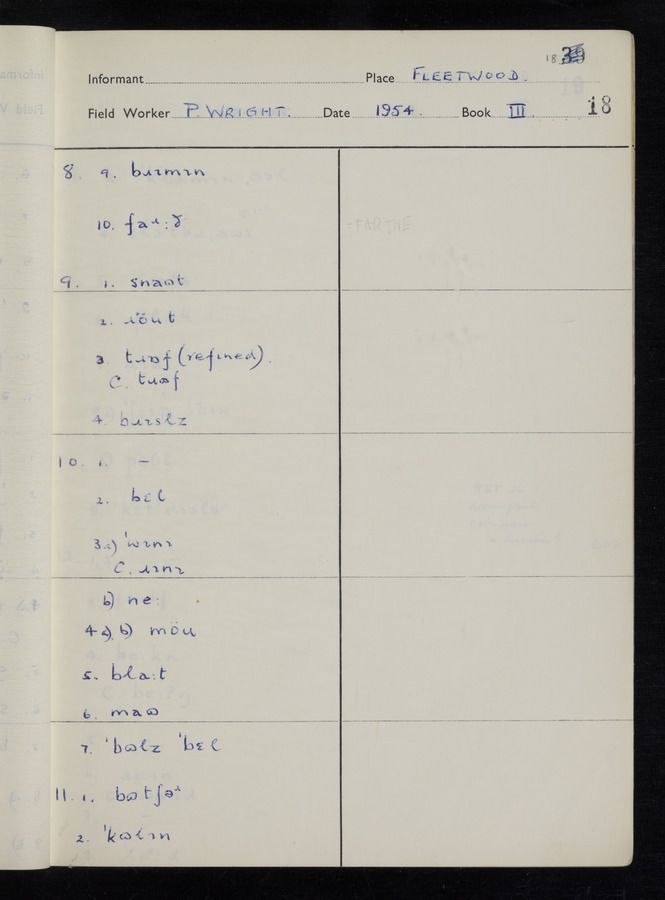 18 39
Informant Place FLEETWOOD.
Field Worker P. WRIGHT. Date 1954. Book III. 18
8. 9. bɹɪmɪn
10. faɹ:ð
-FARTHE
9. 1. snaɷt
2. ɹöut
3. tɹɒf (refined).
C. tɹɷf
4. bɹɪslz
10. 1. –
2. bɛl
3a) 'wɪnɪ
C. ɪɪnɪ
b) ne:
4a), b) möu
5. bla:t
6. maɷ
7. 'bɷlz 'bɛl
11. 1. bɷtʃəʴ
2. 'kɷlɪn